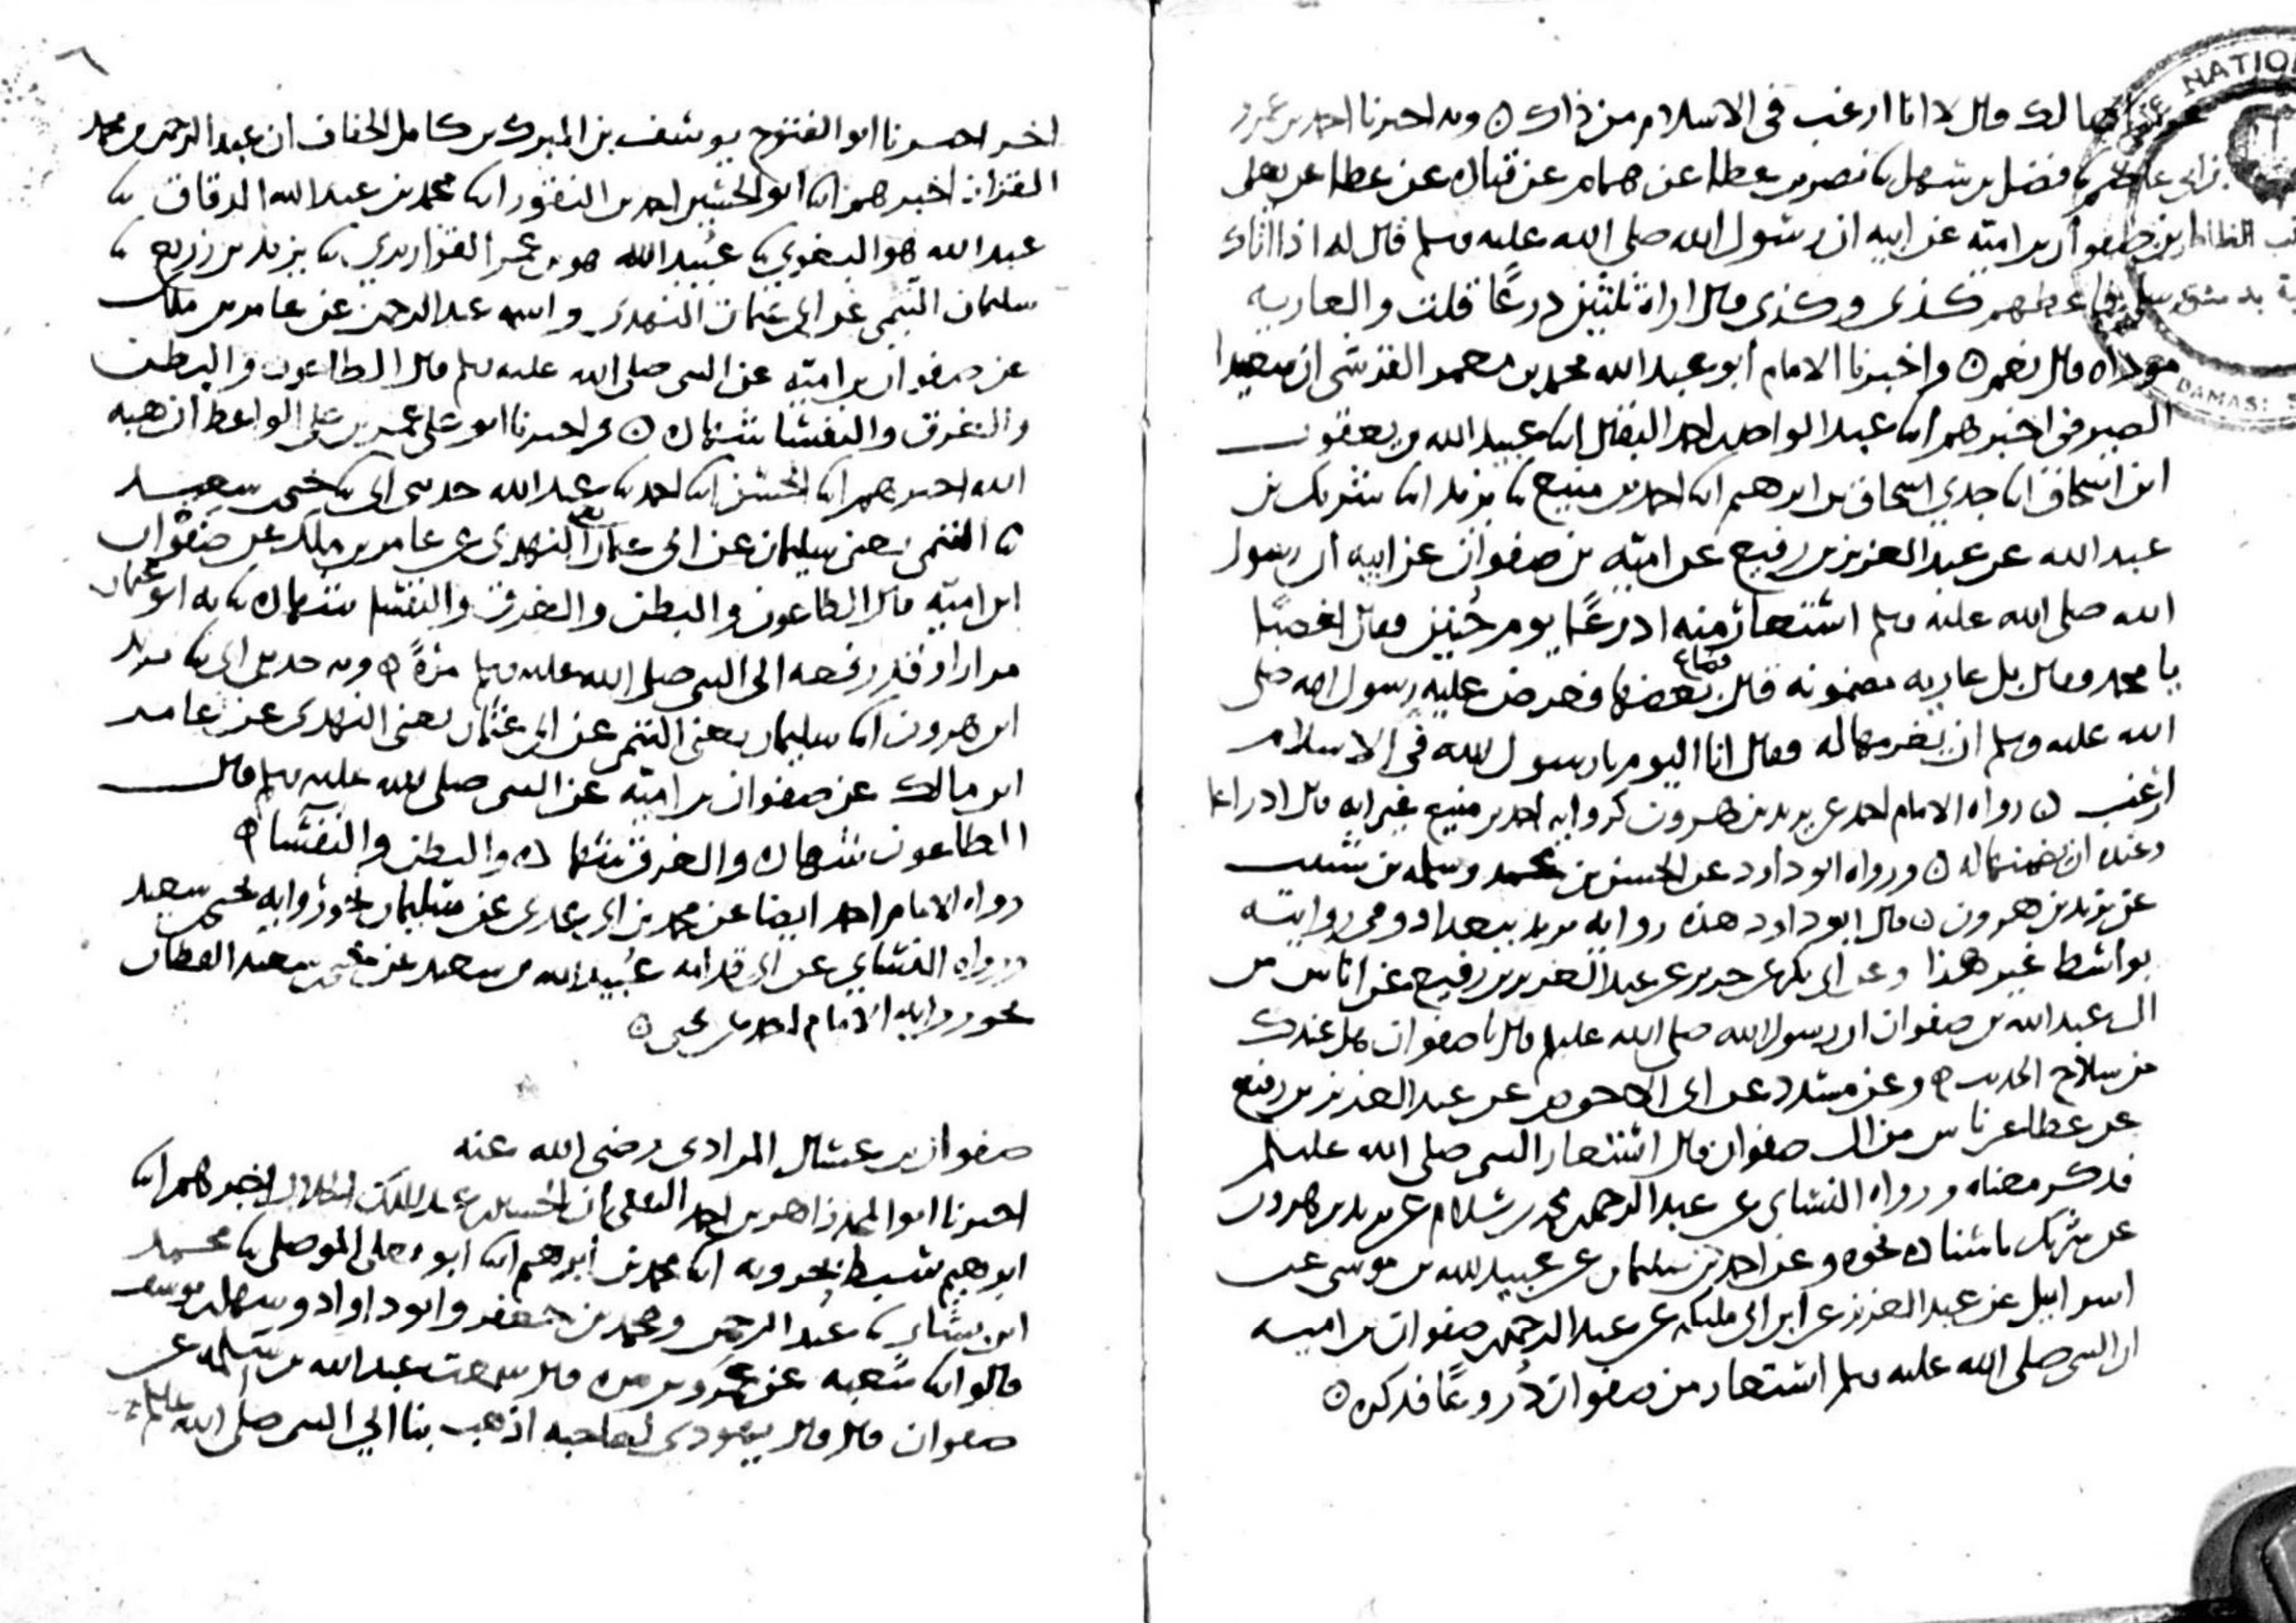 لك قال لا انا ارغب في الاسلام من ذلك ه وبه اخبرنا احمد بن عمرو
بن ابي عاصم ثنا فضل بن سهل ثنا نصر بن عطا عن همام عن قتاده عن عطا عن يعلى
بن صفوان بن اميه عن ابيه ان رسول الله صلى الله عليه وسلم قال له اذا اتاك
رسلي فاعطهم كذى وكذى قال اراه ثلثين درعًا قلت والعاريه
موداه قال نعم ه واخبرنا الامام ابو عبد الله محمد بن معمر القرشي ان سعيدا
الصيرفي اخبرهم ابنا عبد الواحد بن احمد البقال ابنا عبيد الله بن يعقوب
ابن اسحاق ابنا جدي اسحاق بن ابرهيم ابنا احمد بن منيع ثنا يزيد ابنا شريك بن
عبد الله عن عبد العزيز بن رفيع عن اميه بن صفوان عن ابيه ان رسول
الله صلى الله عليه وسلم استعار منه ادرعًا يوم حُنين فقال اغصبًا
يا محمد فقال بل عاريه مضمونه قال فضاع بعضها فعرض عليه رسول الله صلى
الله عليه وسلم ان يغرمها له فقال انا اليوم يا رسول الله في الاسلام
ارغب ه رواه الامام احمد عن يزيد بن هرون كروايه احمد بن منيع غير انه قال ادراعا
وعنده ان يضمنها له ه ورواه ابو داود عن الحسن بن محمد وسلمه بن شبيب
عن يزيد بن هرون ه قال ابو داود هذه روايه يزيد ببغداد وفي روايته
بواسط غير هذا وعن ابي بكر عن جرير عن عبد العزيز بن رفيع عن اناس من
ال عبد الله بن صفوان ان رسول الله صلى الله عليه وسلم قال يا صفوان هل عندك
من سلاح الحديث ه وعن مسدد عن ابي الاحوص عن عبد العزيز بن رفيع
عن عطا عن ناس من ال صفوان قال استعار النبي صلى الله عليه وسلم
فذكر معناه ورواه النسائي عن عبد الرحمن بن محمد بن سلام عن يزيد بن هرون
عن شريك باسناده نحوه وعن احمد بن سليمان عن عبيد الله بن موسى عن
اسرائيل عن عبد العزيز عن ابن ابي مليكه عن عبد الرحمن بن صفوان بن اميه
ان النبي صلى الله عليه وسلم استعار من صفوان دُروعًا فذكره ه
اخر اخبرنا ابو الفتوح يوسف بن المبرك بن كامل الخفاف ان عبد الرحمن بن محمد
القزاز اخبرهم ابنا ابو الحسين احمد بن النقور ابنا محمد بن عبد الله الدقاق ثنا
عبد الله هو البغوي ثنا عُبيد الله هو بن عمر القواريري ثنا يزيد بن زريع ثنا
سليمان التيمي عن ابي عثمان النهدي واسمه عبد الرحمن عن عامر بن ملك
عن صفوان بن اميه عن النبي صلى الله عليه وسلم قال الطاعون والبطن
والغرق والنفسا شهاده ه واخبرنا ابو علي عمر بن علي الواعظ ان هبه
الله اخبرهم ابنا الحسن ابنا احمد ثنا عبد الله حدثني ابي ثنا يحيى بن سعيد
ثنا التيمي يعني سليمان عن ابي عثمان يعني النهدي عن عامر بن ملك عن صفوان
ابن اميه قال الطاعون والبطن والغرق والنفسا شهاده ثنا به ابو عثمان
مرارا وقد رفعه الى النبي صلى الله عليه وسلم مرةً ه وبه حدثني ابي ثنا يزيد
ابن هرون ابنا سليمان يعني التيمي عن ابي عثمان يعني النهدي عن عامر
ابن مالك عن صفوان بن اميه عن النبي صلى الله عليه وسلم قال
الطاعون شهاده والغرق شهاده والبطن والنفسا ه
رواه الامام احمد ايضا عن محمد بن ابي عدي عن سليمان نحو روايه يحيى بن سعيد
ورواه النسائي عن ابي قدامه عُبيد الله بن سعيد عن يحيى بن سعيد القطان
نحو روايه الامام احمد عن يحيى ه
صفوان بن عسال المرادي رضي الله عنه
اخبرنا ابو المجد زاهر بن احمد الثقفي ان الحسين بن عبد الملك الخلال اخبرهم ابنا
ابرهيم سبط بحرويه ابنا محمد بن ابرهيم ابنا ابو يعلى الموصلي ثنا محمد
ابن بشار ثنا عبد الرحمن ومحمد بن جعفر وابو داود وسهل بن يوسف
قالوا ابنا شعبه عن عمرو بن مره قال سمعت عبد الله بن سلمه عن
صفوان قال قال يهودي لصاحبه اذهب بنا الى النبي صلى الله عليه وسلم